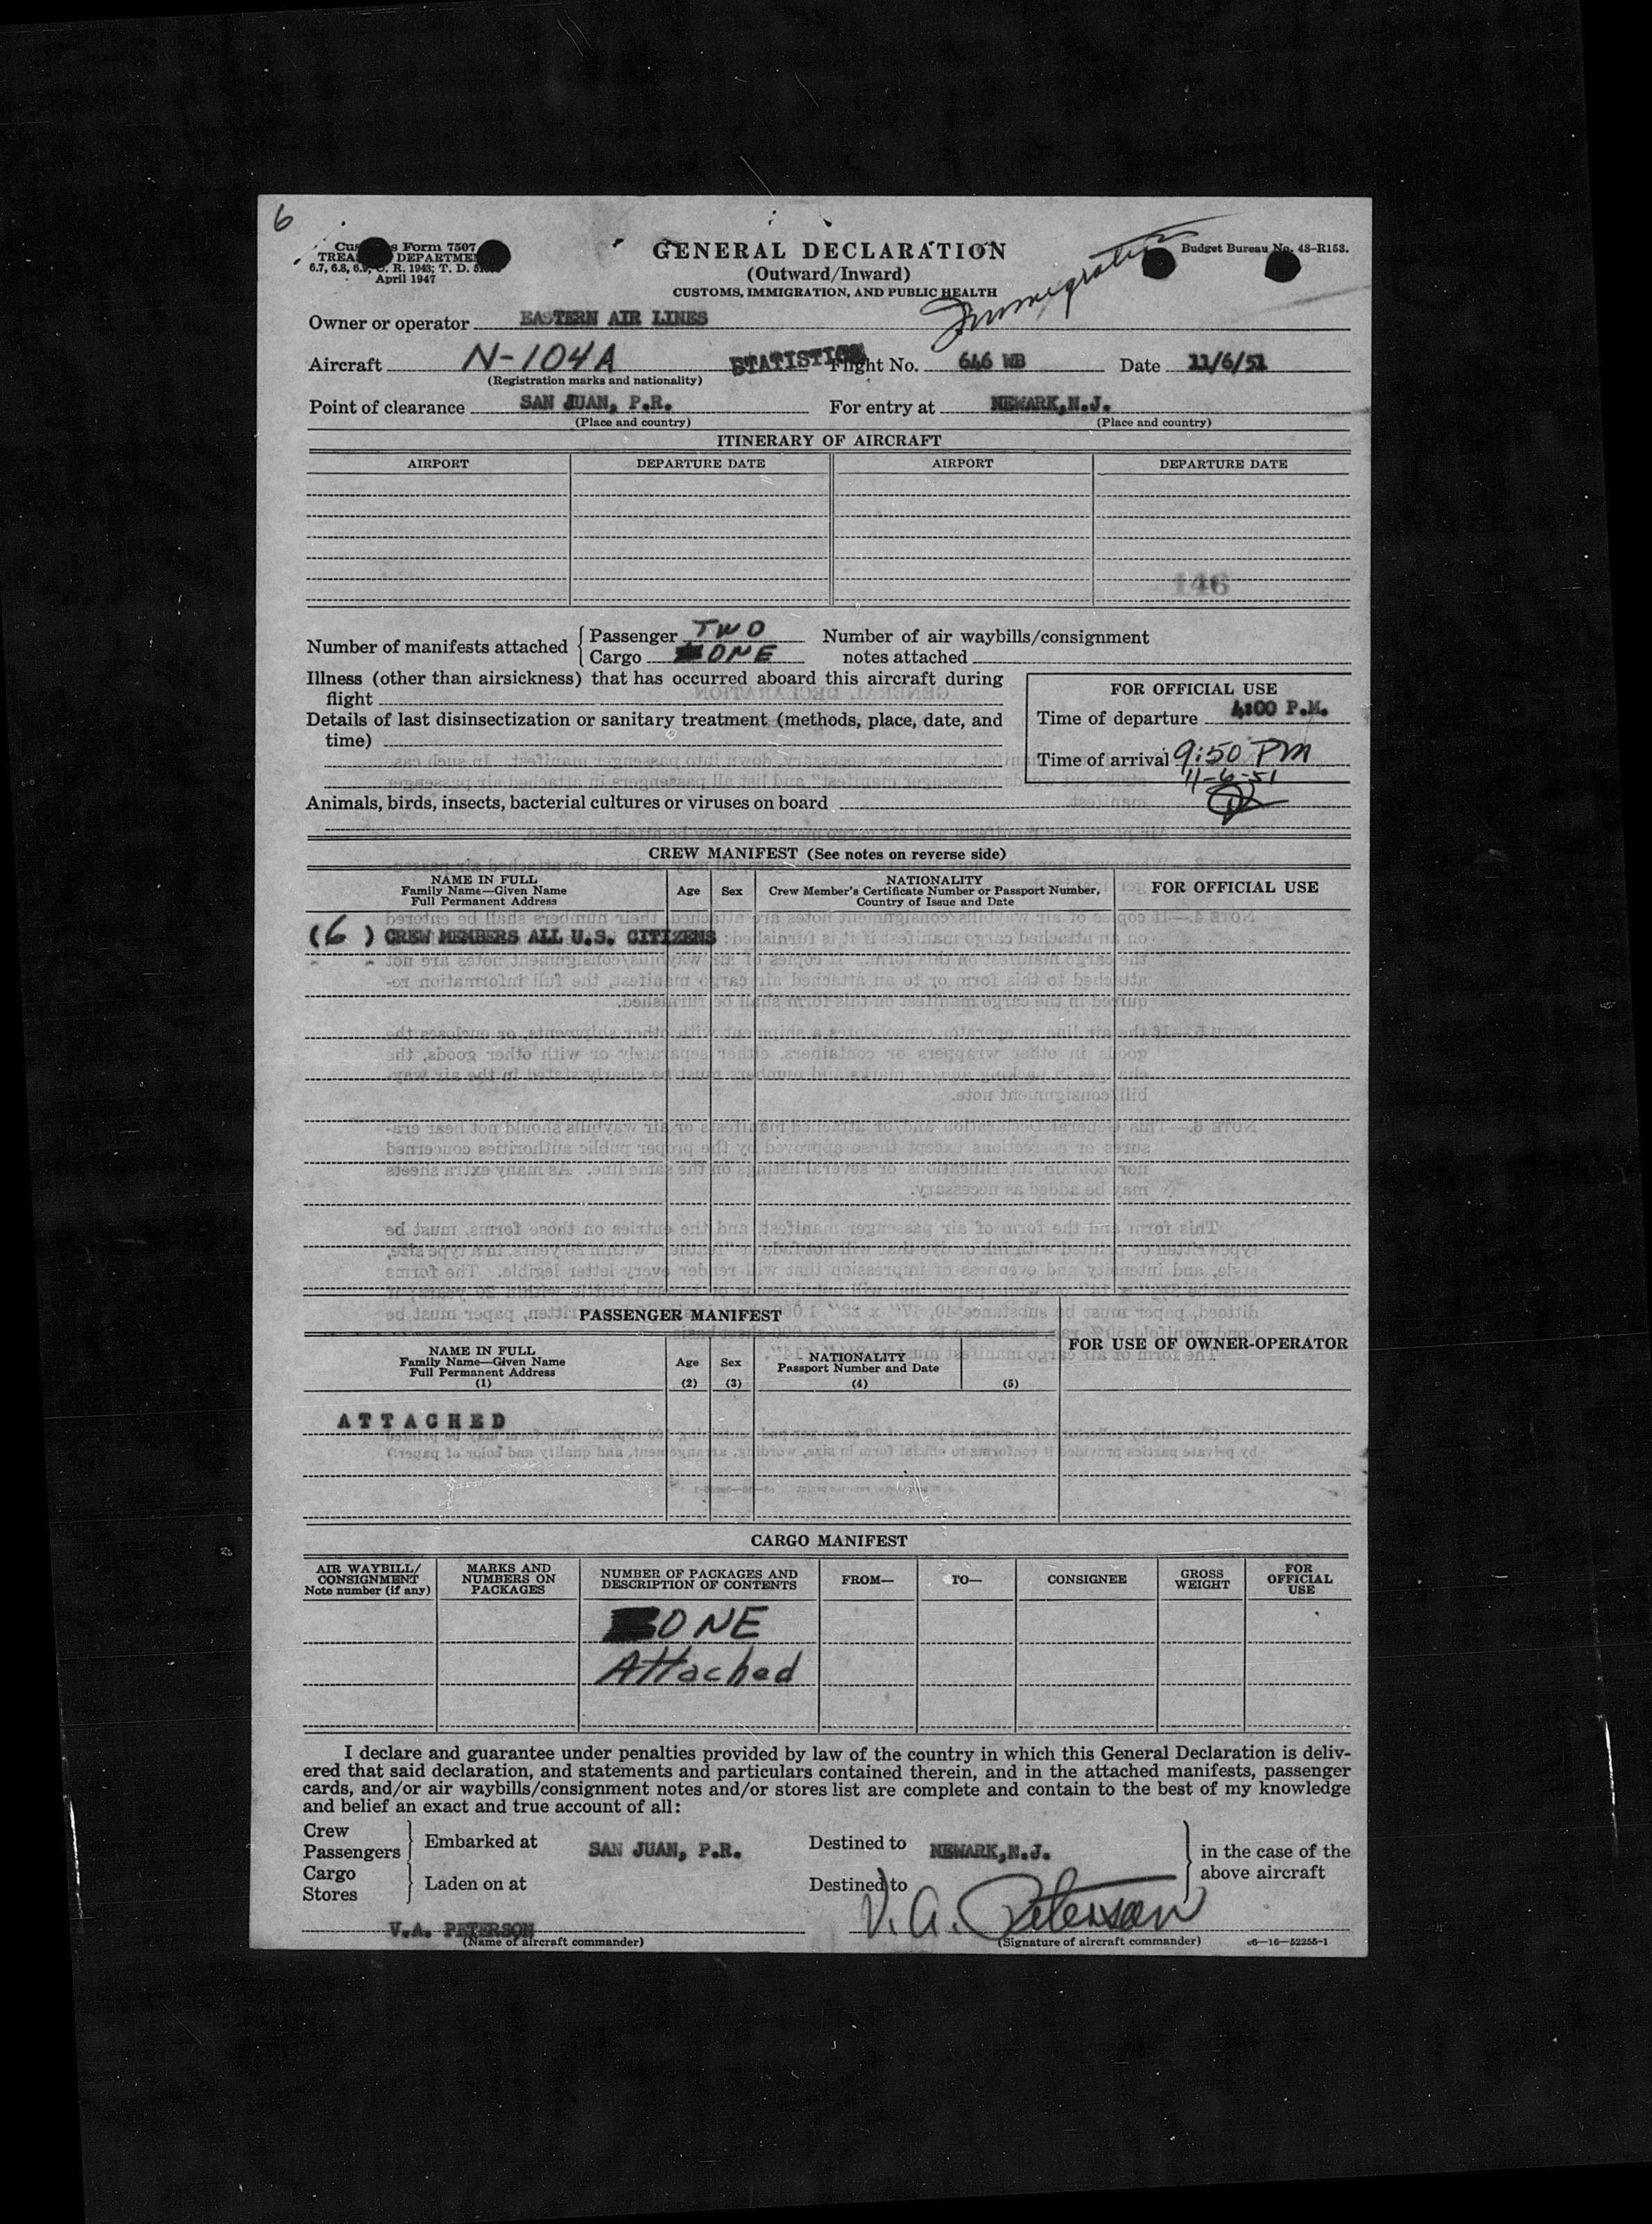 6
Customs Form 7507
TREASURY DEPARTMENT
6.7, 6.8, 6.9, C. R. 1943; T. D.
April 1947
GENERAL DECLARATION
(Outward/Inward)
CUSTOMS, IMMIGRATION, AND PUBLIC HEALTH
Immigration
Budget Bureau No. 48-R153.
Owner or operator EASTERN AIR LINES
Aircraft N-104A STATISTICS Flight No. 646 WB Date 11/6/51
(Registration marks and nationality)
Point of clearance SAN JUAN, P.R. For entry at NEWARK,N.J.
(Place and country) (Place and country)
ITINERARY OF AIRCRAFT
AIRPORT DEPARTURE DATE AIRPORT DEPARTURE DATE
146
Number of manifests attached Passenger TWO Number of air waybills/consignment
Cargo ONE notes attached
Illness (other than airsickness) that has occurred aboard this aircraft during
flight
Details of last disinsectization or sanitary treatment (methods, place, date, and
time)
FOR OFFICIAL USE
Time of departure 4:00 P.M.
Time of arrival 9:50 PM
11-6-51
Animals, birds, insects, bacterial cultures or viruses on board
CREW MANIFEST (See notes on reverse side)
NAME IN FULL
Family Name—Given Name
Full Permanent Address
Age
Sex
NATIONALITY
Crew Member's Certificate Number or Passport Number,
Country of Issue and Date
FOR OFFICIAL USE
(6) CREW MEMBERS ALL U.S. CITIZENS
PASSENGER MANIFEST
NAME IN FULL
Family Name—Given Name
Full Permanent Address
(1)
Age
(2)
Sex
(3)
NATIONALITY
Passport Number and Date
(4) (5)
FOR USE OF OWNER-OPERATOR
ATTACHED
CARGO MANIFEST
AIR WAYBILL/
CONSIGNMENT
Note number (if any)
MARKS AND
NUMBERS ON
PACKAGES
NUMBER OF PACKAGES AND
DESCRIPTION OF CONTENTS
FROM—
TO—
CONSIGNEE
GROSS
WEIGHT
FOR
OFFICIAL
USE
ONE
Attached
I declare and guarantee under penalties provided by law of the country in which this General Declaration is deliv-
ered that said declaration, and statements and particulars contained therein, and in the attached manifests, passenger
cards, and/or air waybills/consignment notes and/or stores list are complete and contain to the best of my knowledge
and belief an exact and true account of all:
Crew
Passengers
Embarked at SAN JUAN, P.R. Destined to NEWARK,N.J.
Cargo
Stores
Laden on at Destined to
in the case of the
above aircraft
V.A. PETERSON V. A. Peterson
(Name of aircraft commander) (Signature of aircraft commander) c6—16—52255-1